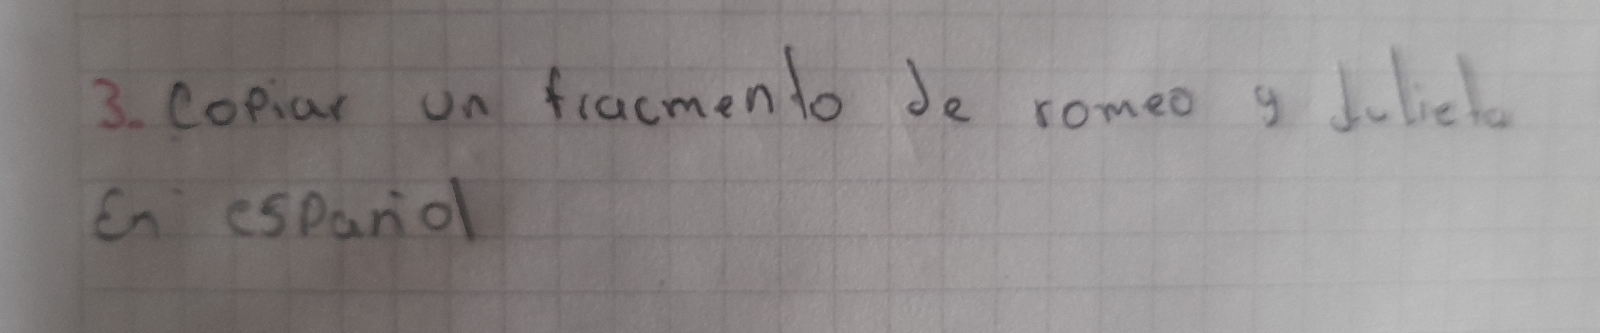 3. Copiar un fracmento de romeo y Julieta
En español